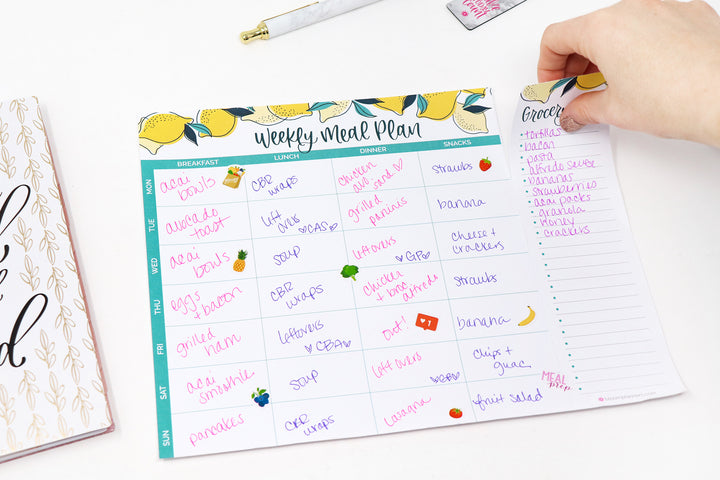 Weekly Meal Plan
BREAKFAST LUNCH DINNER SNACKS
MON
acai
bowls
CBR
wraps
chicken
avo sand ♡
straubs
TUE
avocado
toast
left
overs
♡CAS♡
grilled
paninis
banana
WED
acai
bowls
soup
leftovers
♡GP♡
cheese +
crackers
THU
eggs
+ bacon
CBR
wraps
chicken
+ broc
alfredo
straubs
FRI
grilled
ham
leftovers
♡CBA♡
Out!
1
banana
SAT
acai
smoothie
soup
left overs
chips +
guac
SUN
pancakes
CBR
wraps
lasagna
fruit salad
MEAL
prep
Grocery
tortillas
bacon
pasta
alfredo sauce
bananas
strawberries
acai packs
granola
honey
crackers
bloomplanners.com